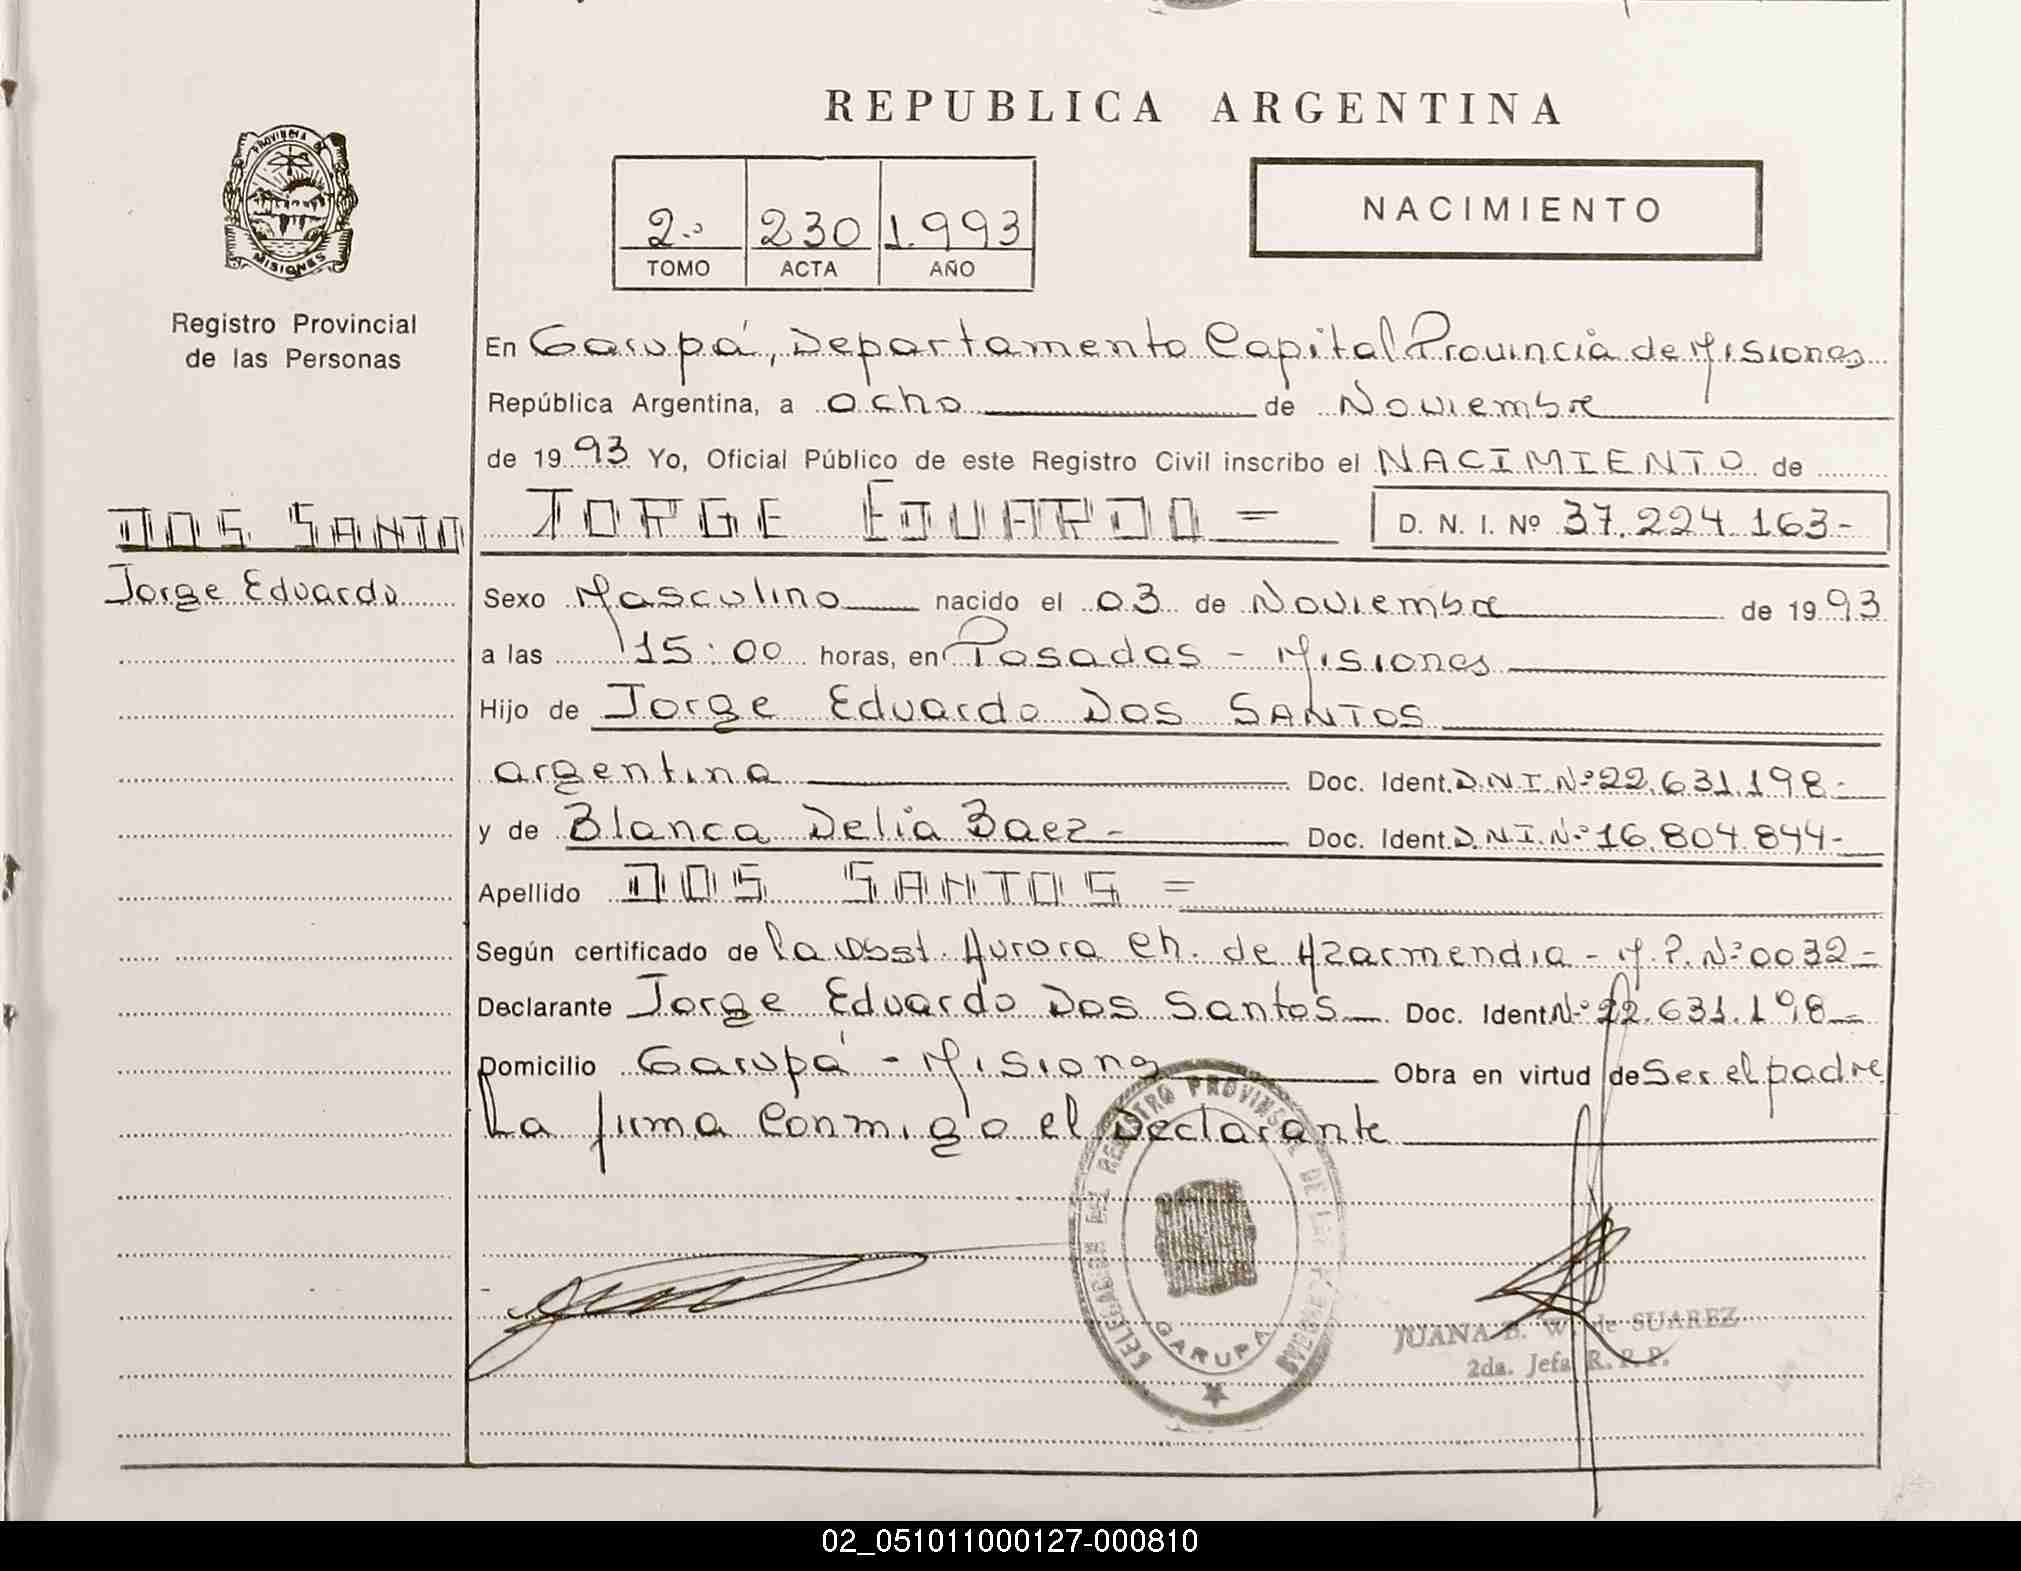 REPUBLICA ARGENTINA
PROVINCIA DE
MISIONES
Registro Provincial
de las Personas
2.º 230 1.993
TOMO ACTA AÑO
NACIMIENTO
En Garupá, Departamento Capital Provincia de Misiones
República Argentina, a ocho de Noviembre
de 1993 Yo, Oficial Público de este Registro Civil inscribo el NACIMIENTO de
DOS SANTO
JORGE EDUARDO =
D. N. I. Nº 37.224.163-
Jorge Eduardo
Sexo Masculino nacido el 03 de Noviembre de 1993
a las 15:00 horas, en Posadas - Misiones
Hijo de Jorge Eduardo Dos SANTOS
argentina Doc. Ident. D.N.I.Nº 22.631.198-
y de Blanca Delia Baez- Doc. Ident. D.N.I.Nº 16.804.844-
Apellido DOS SANTOS =
Según certificado de la Obst. Aurora Ch. de Azarmendia - M.P. Nº 0032-
Declarante Jorge Eduardo Dos Santos Doc. Ident Nº 22.631.198-
Domicilio Garupá - Misiones Obra en virtud de Ser el padre
La firma Conmigo el Declarante
REGISTRO PROVINSE DE
GARUPA
JUANA B. W. de SUAREZ
2da. Jefa R.P.P.
02_051011000127-000810